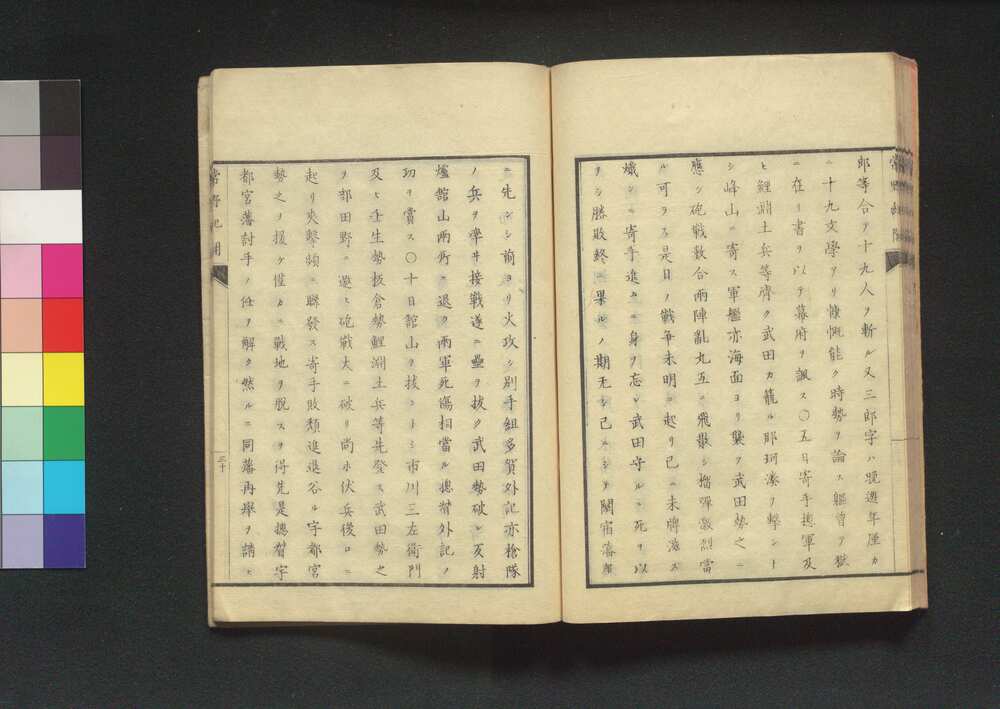 郎等合テ十九人ヲ斬ル又三郎字ハ選年僅カ
ニ十九文學アリ慷慨能ク時勢ヲ論ス軀曾テ獄
ニ在リ書ヲ以テ幕府ヲ諷ス〇五日寄手摠軍及
ヒ鯉淵土兵等齊ク武田カ籠ル那珂湊ヲ撃ント
シ峰山ニ寄ス軍艦亦海面ヨリ襲フ武田勢之ニ
應シ砲戦数合両陣亂丸五ニ飛散シ榴弾激烈當
ル可ラス是日ノ戦争未明ニ起リ已ニ未牌滋ス
熾シ寄手進ムニ身ヲ忘レ武田守ルニ死ヲ以
ヲシ勝敗終ニ果ルノ期无シ已ルシテ関宿藩
ニ先シシ前ヨリ火攻シ別手組多賀外記亦槍隊
ノ兵ヲ率井接戦遂ニ壘ヲ抜ク武田勢破レ反射
爐館山両所ニ退ク両軍死傷相當ル摠督外記ノ
功ヲ賞ス〇十日館山ヲ抜コトシ市川三左衛門
及ヒ壬生勢板倉勢鯉淵土兵等先登ス武田勢之
ヲ部田野ニ邀ヒ砲戦大ニ破リ尚ホ伏兵後ロニ
起リ夾撃頻ニ聯發ス寄手敗頽進退谷ル宇都宮
勢之ノ援ケ僅カニ戦地ヲ脱スヲ得芫是摠督宇
都宮藩討手ノ任ヲ解ク然ルニ同藩再擧ヲ請ヒ
三十